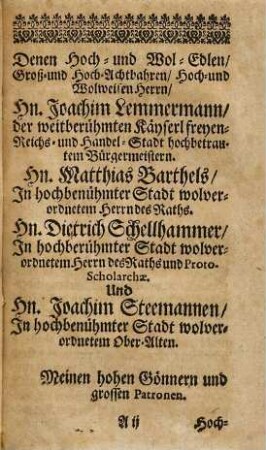 Denen Hoch- und Wol-Edlen/
Groß-und Hoch-Achtbahren/ Hoch-und
Wolweisen Herrn/
Hn. Joachim Lemmermann/
der weitberühmten Käyserl freyen-
Reichs- und Handel-Stadt hochbetrau-
tem Bürgermeistern.
Hn. Matthias Barthels/
In hochbenühmter Stadt wolver-
ordnetem Herrn des Raths.
Hn. Dietrich Schellhammer/
In hochberühmter Stadt wolver-
ordnetem Herrn des Raths und Proto-
Scholarchæ.
Und
Hn. Joachim Steemannen/
In hochbenühmter Stadt wolver-
ordnetem Ober-Alten.
Meinen hohen Gönnern und
grossen Patronen.
A ij Hoch-